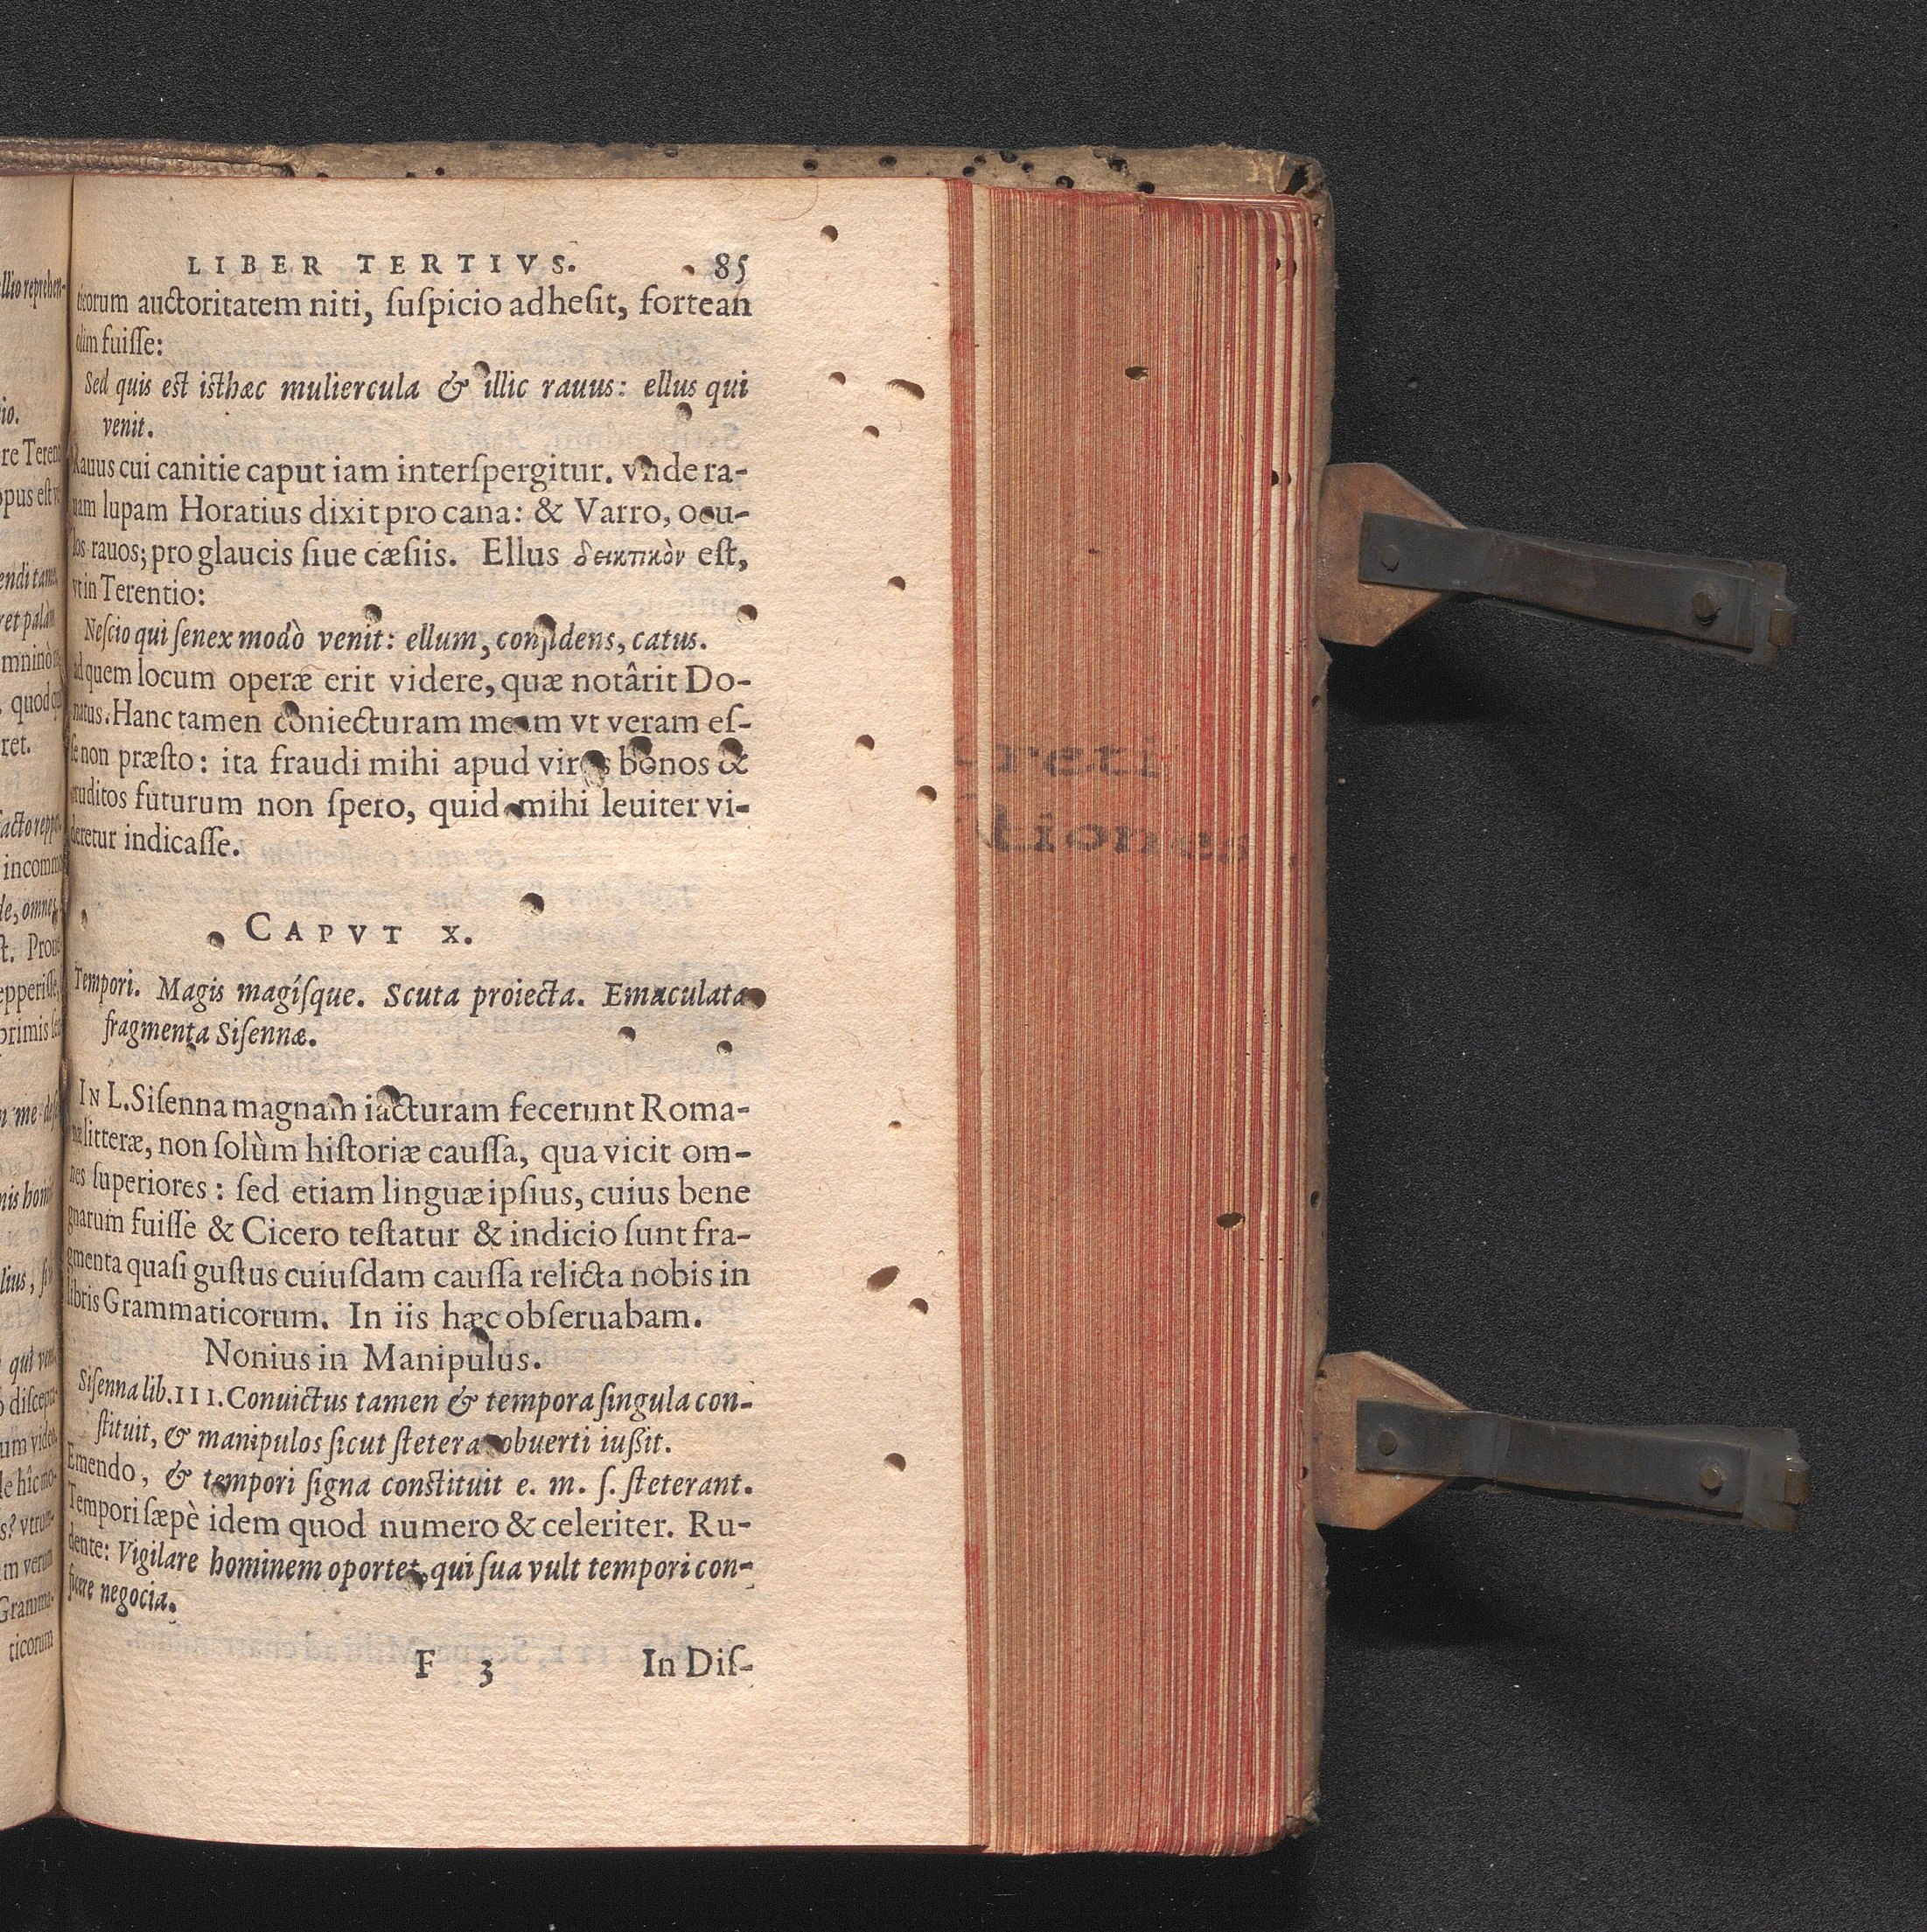 LIBER TERTIVS. 85
ticorum auctoritatem niti, ſuſpicio adheſit, fortean
olim fuiſſe:
Sed quis est isthæc muliercula & illic rauus: ellus qui
venit.
Rauus cui canitie caput iam interſpergitur. vnde ra-
uam lupam Horatius dixit pro cana: & Varro, ocu-
los rauos; pro glaucis ſiue cæſiis. Ellus δεικτικὸν eſt,
vt in Terentio:
Neſcio qui ſenex modò venit: ellum, confidens, catus.
ad quem locum operæ erit videre, quæ notârit Do-
natus. Hanc tamen coniecturam meam vt veram eſ-
ſe non præſto: ita fraudi mihi apud viros bonos &
eruditos futurum non ſpero, quid mihi leuiter vi-
deretur indicaſſe.
CAPVT X.
Tempori. Magis magíſque. Scuta proiecta. Emaculata
fragmenta Siſennæ.
IN L. Siſenna magnam iacturam fecerunt Roma-
næ litteræ, non ſolùm hiſtoriæ cauſſa, qua vicit om-
nes ſuperiores: ſed etiam linguæ ipſius, cuius bene
gnarum fuiſſe & Cicero teſtatur & indicio ſunt fra-
gmenta quaſi guſtus cuiuſdam cauſſa relicta nobis in
libris Grammaticorum. In iis hæc obſeruabam.
Nonius in Manipulus.
Siſenna lib. III. Conuictus tamen & tempora ſingula con-
ſtituit, & manipulos ſicut ſtetera obuerti iuſſit.
Emendo, & tempori ſigna constituit e. m. ſ. ſteterant.
Tempori ſæpè idem quod numero & celeriter. Ru-
dente: Vigilare hominem oportet, qui ſua vult tempori con-
ficere negocia.
F 3 In Diſ-